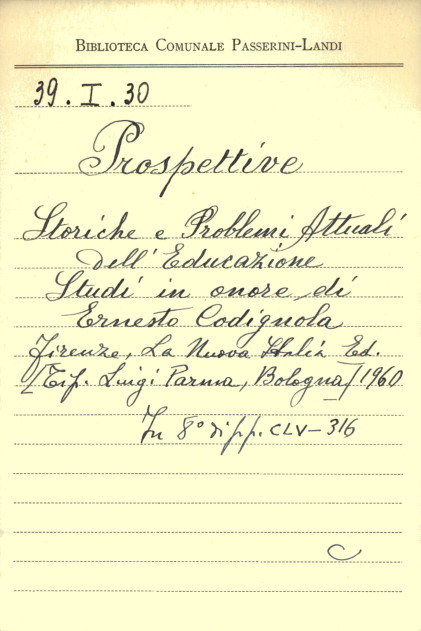 BIBLIOTECA COMUNALE PASSERINI-LANDI
39. I. 30
Prospettive
Storiche e Problemi Attuali
dell'Educazione
Studi in onore di
Ernesto Codignola
Firenze, La Nuova Italia Ed.
[Tip. Luigi Parma, Bologna] 1960
In 8° di pp. CLV-316
C